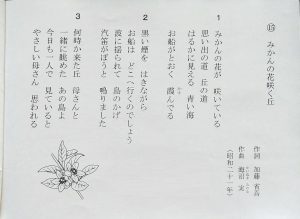 ⑮ みかんの花咲く丘
作詞 加藤 省吾
作曲 海沼 実
(昭和二十一年)
1
みかんの花が 咲いている
思い出の道 丘の道
はるかに見える 青い海
お船がとおく 霞んでる
2
黒い煙を はきながら
お船は どこへ行くのでしょう
波に揺られて 島のかげ
汽笛がぼうと 鳴りました
3
何時か来た丘 母さんと
一緒に眺めた あの島よ
今日も一人で 見ていると
やさしい母さん 思われる